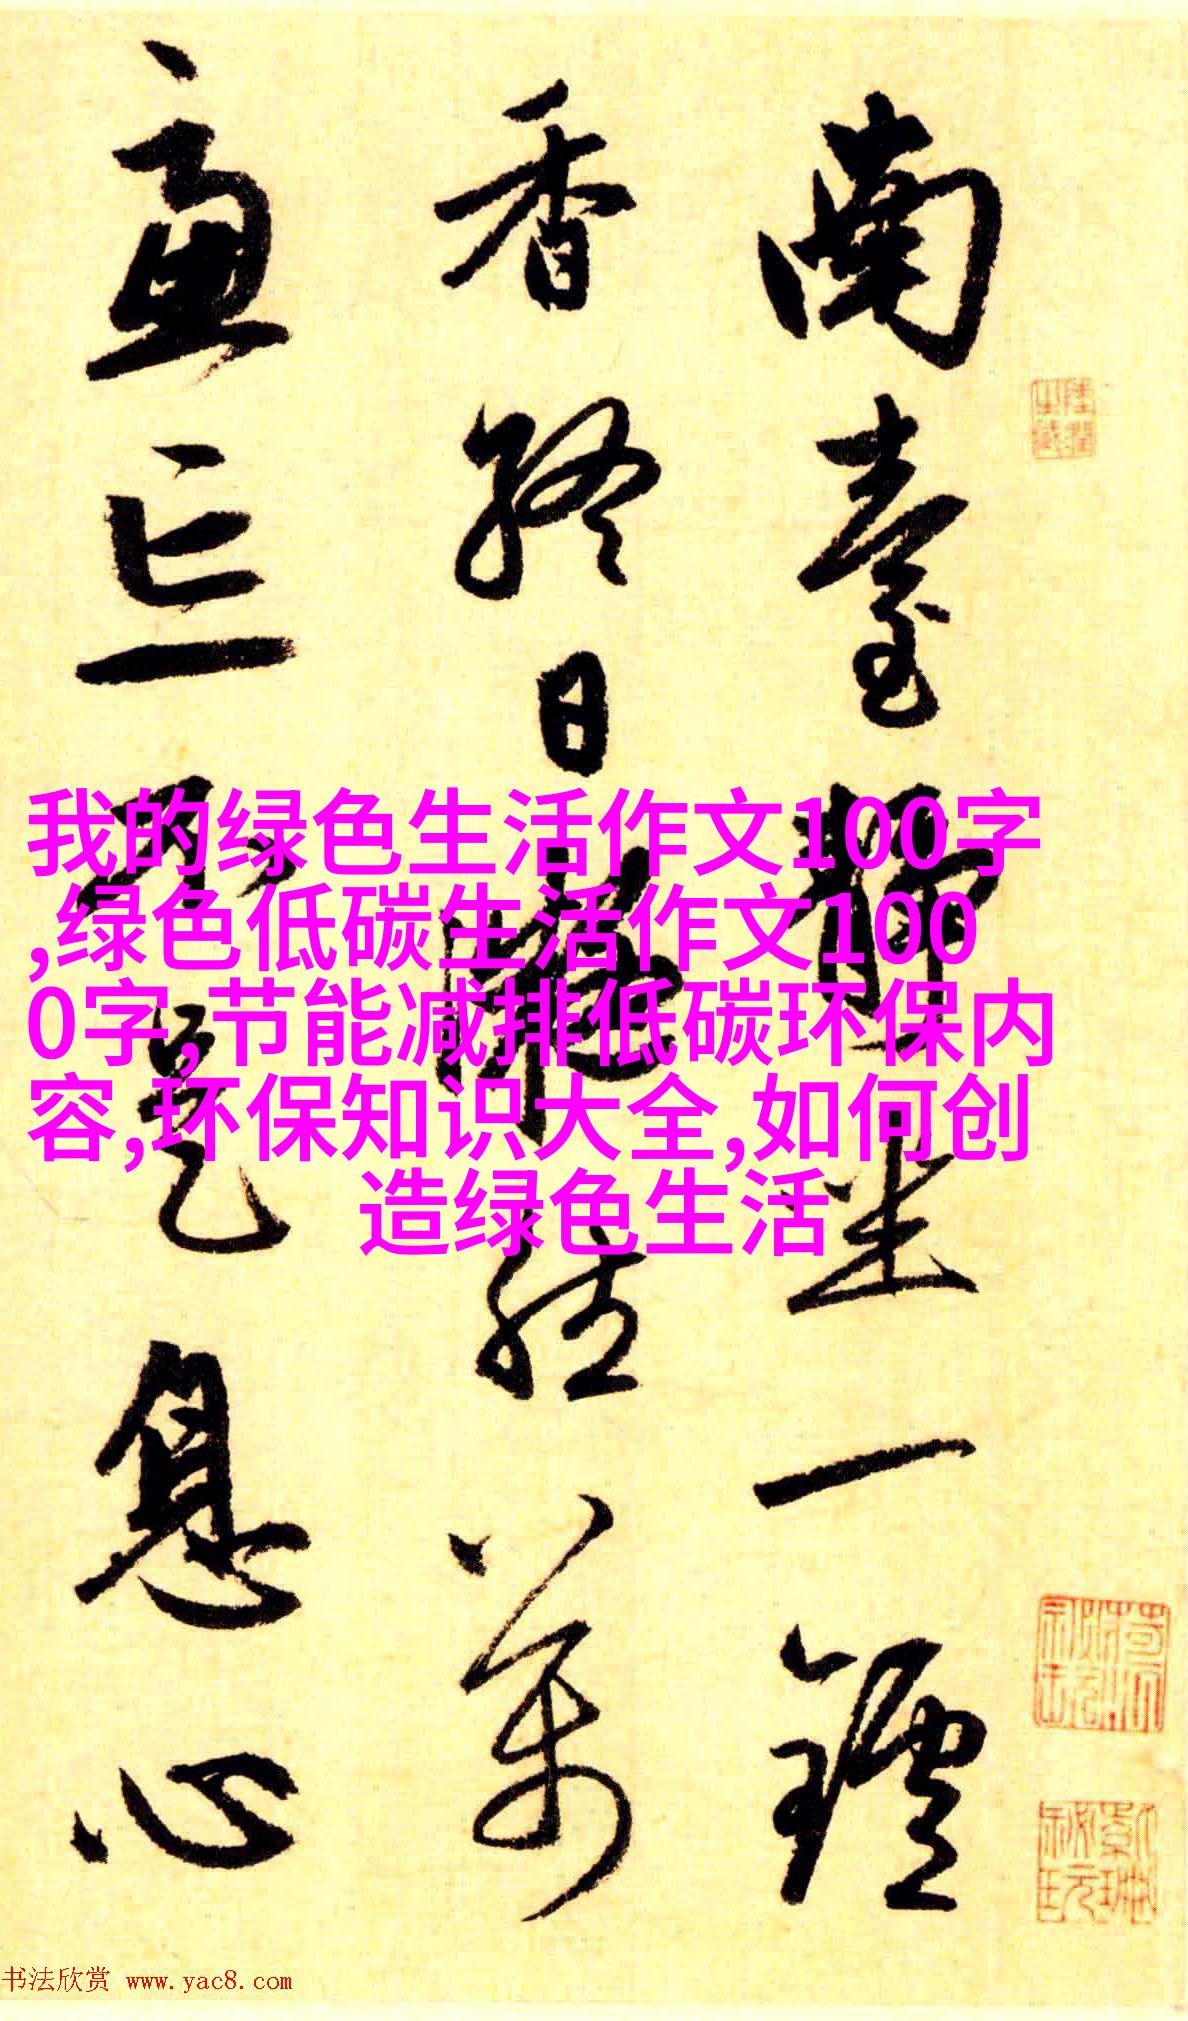 南臺靜坐一鑪
香終日凝然萬
慮亡不是息心
我的绿色生活作文100字
,绿色低碳生活作文100
0字,节能减排低碳环保内
容,环保知识大全,如何创
造绿色生活
书法欣赏 www.yac8.com